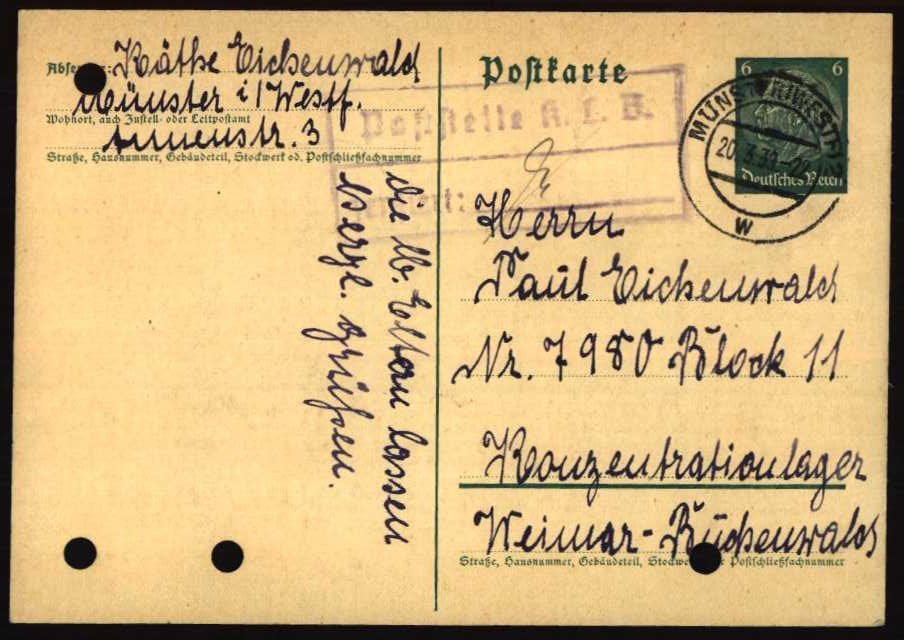 Postkarte
Käthe Eichenwald
Münster i/Westf.
Wohnort, auch Zustell- oder Leitpostamt
Annenstr. 3
Straße, Hausnummer, Gebäudeteil, Stockwerk od. Postschließfachnummer
Poststelle K. L. B.
6 6
Deutsches Reich
MÜNSTER (WESTF)
20.3.39
w
Herrn
Paul Eichenwald
Nr. 7980 Block 11
Konzentrationlager
Weimar-Buchenwald
Straße, Hausnummer, Gebäudeteil, Postschließfachnummer
die lb. Eltern lassen
herzl. grüßen.